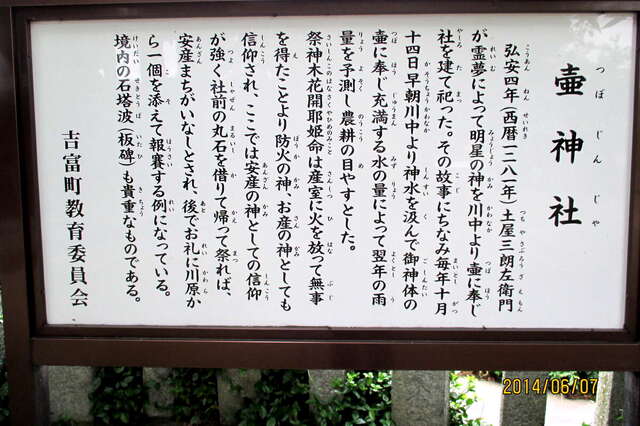 壷神社
弘安四年(西暦一二八一年)土屋三朗左衛門
が霊夢によって明星の神を川中より壷に奉じ
社を建て祀った。その故事にちなみ毎年十月
十四日早朝川中より神水を汲んで御神体の
壷に奉じ充満する水の量によって翌年の雨
量を予測し農耕の目やすとした。
祭神木花開耶姫命は産室に火を放って無事
を得たことより防火の神、お産の神としても
信仰され、ここでは安産の神としての信仰
が強く社前の丸石を借りて帰って祭れば、
安産まちがいなしとされ、後でお礼に川原か
ら一個を添えて報賽する例になっている。
境内の石塔波(板碑)も貴重なものである。
吉富町教育委員会
2014/06/07